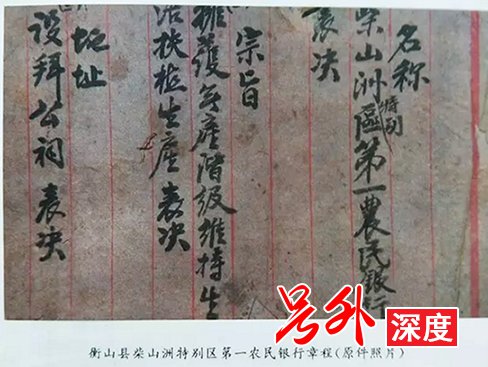 名称
柴山洲特别區第一農民銀行
表决
宗旨
擁護無產階級維持生
活扶植生產 表决
地址
设拜公祠 表决
号外 深度
衡山县柴山洲特别区第一农民银行章程(原件照片)